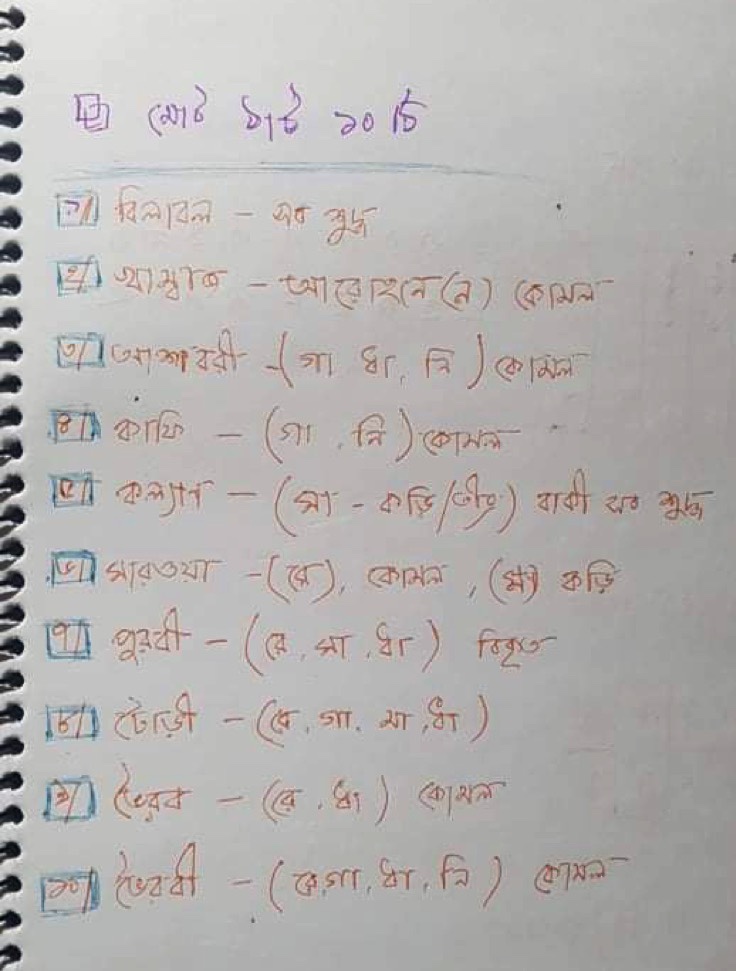 মোট ঠাট ১০ টি
১/ বিলাবল - সব শুদ্ধ
২/ খাম্বাজ - আরোহনে (নে) কোমল
৩/ আশাবরী - (গা ধা, নি) কোমল
৪/ কাফি - (গা, নি) কোমল
৫/ কল্যাণ - (মা - কড়ি/তীব্র) বাকী সব শুদ্ধ
৬/ মারওয়া - (রে), কোমল, (মা) কড়ি
৭/ পুরবী - (রে, মা, ধা) বিকৃত
৮/ টোড়ী - (রে, গা, মা, ধা)
৯/ ভৈরব - (রে, ধা) কোমল
১০/ ভৈরবী - (রে, গা, ধা, নি) কোমল